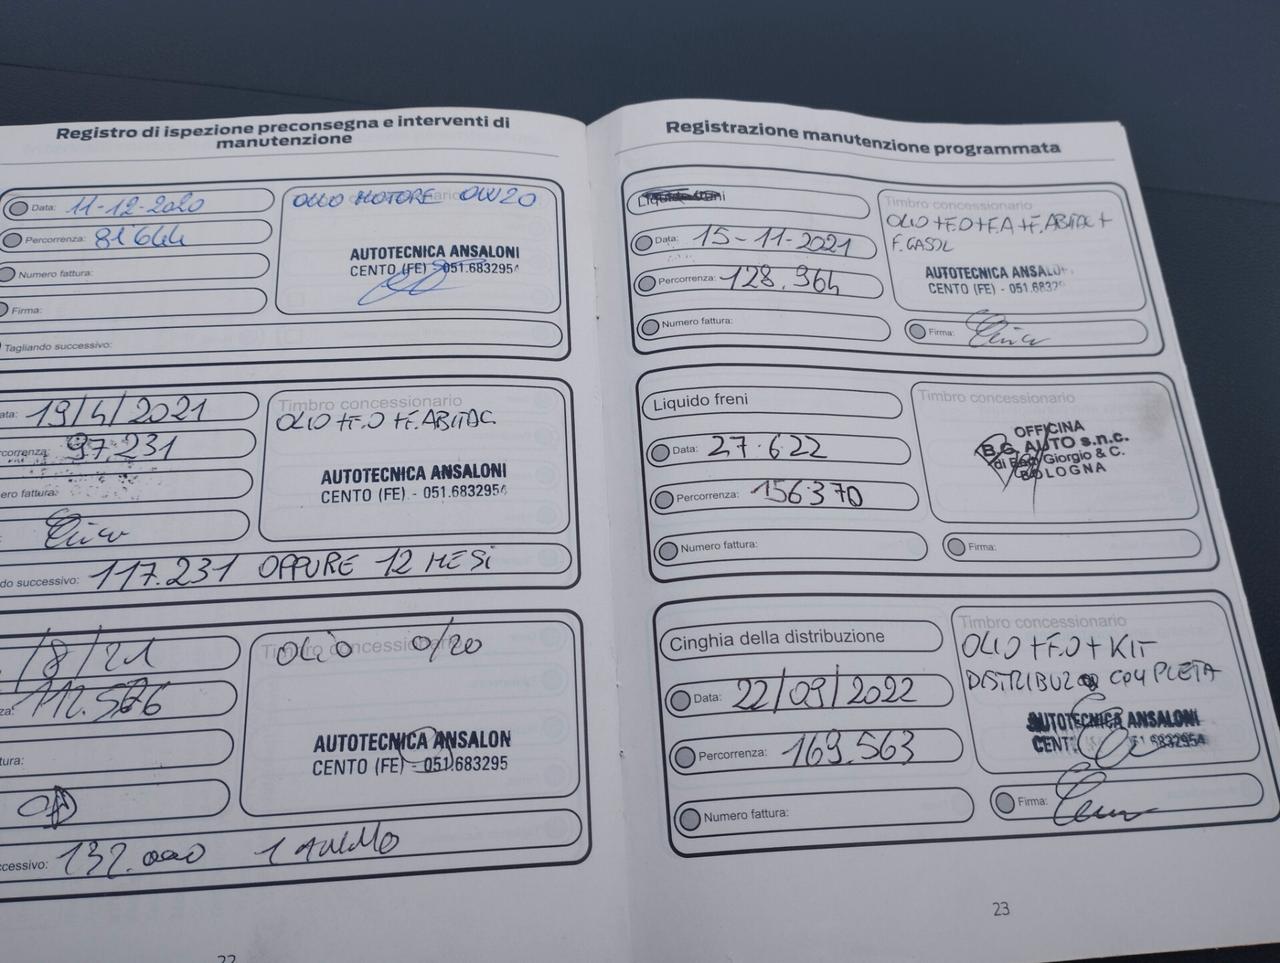 Registro di ispezione preconsegna e interventi di
manutenzione
Data: 11-12-2020
Percorrenza: 81644
Numero fattura:
Firma:
Tagliando successivo:
OLIO MOTORE 0W20
AUTOTECNICA ANSALONI
CENTO (FE) - 051.683295
ata: 19/4/2021
correnza: 97.231
ero fattura:
do successivo: 117.231 OPPURE 12 MESI
Timbro concessionario
OLIO +F.O +F.ABITAC
AUTOTECNICA ANSALONI
CENTO (FE) - 051.6832954
/8/21
za: 112.576
tura:
ccessivo: 132.000 1 ANNO
Timbro concessionario
OLIO 0/20
AUTOTECNICA ANSALON
CENTO (FE) - 051.683295
22
Registrazione manutenzione programmata
Data: 15-11-2021
Percorrenza: 128.964
Numero fattura:
Timbro concessionario
OLIO +F.O +F.A +F.ABITAC +
F.GASOL
AUTOTECNICA ANSALO
CENTO (FE) - 051.6832
Firma:
Liquido freni
Data: 27.6.22
Percorrenza: 156370
Numero fattura:
Timbro concessionario
OFFICINA
B.G. AUTO s.n.c.
di Giorgio & C.
BOLOGNA
Firma:
Cinghia della distribuzione
Data: 22/09/2022
Percorrenza: 169.563
Numero fattura:
Timbro concessionario
OLIO +F.O + KIT
DISTRIBUZ COMPLETA
AUTOTECNICA ANSALONI
CENT 51 6832954
Firma:
23